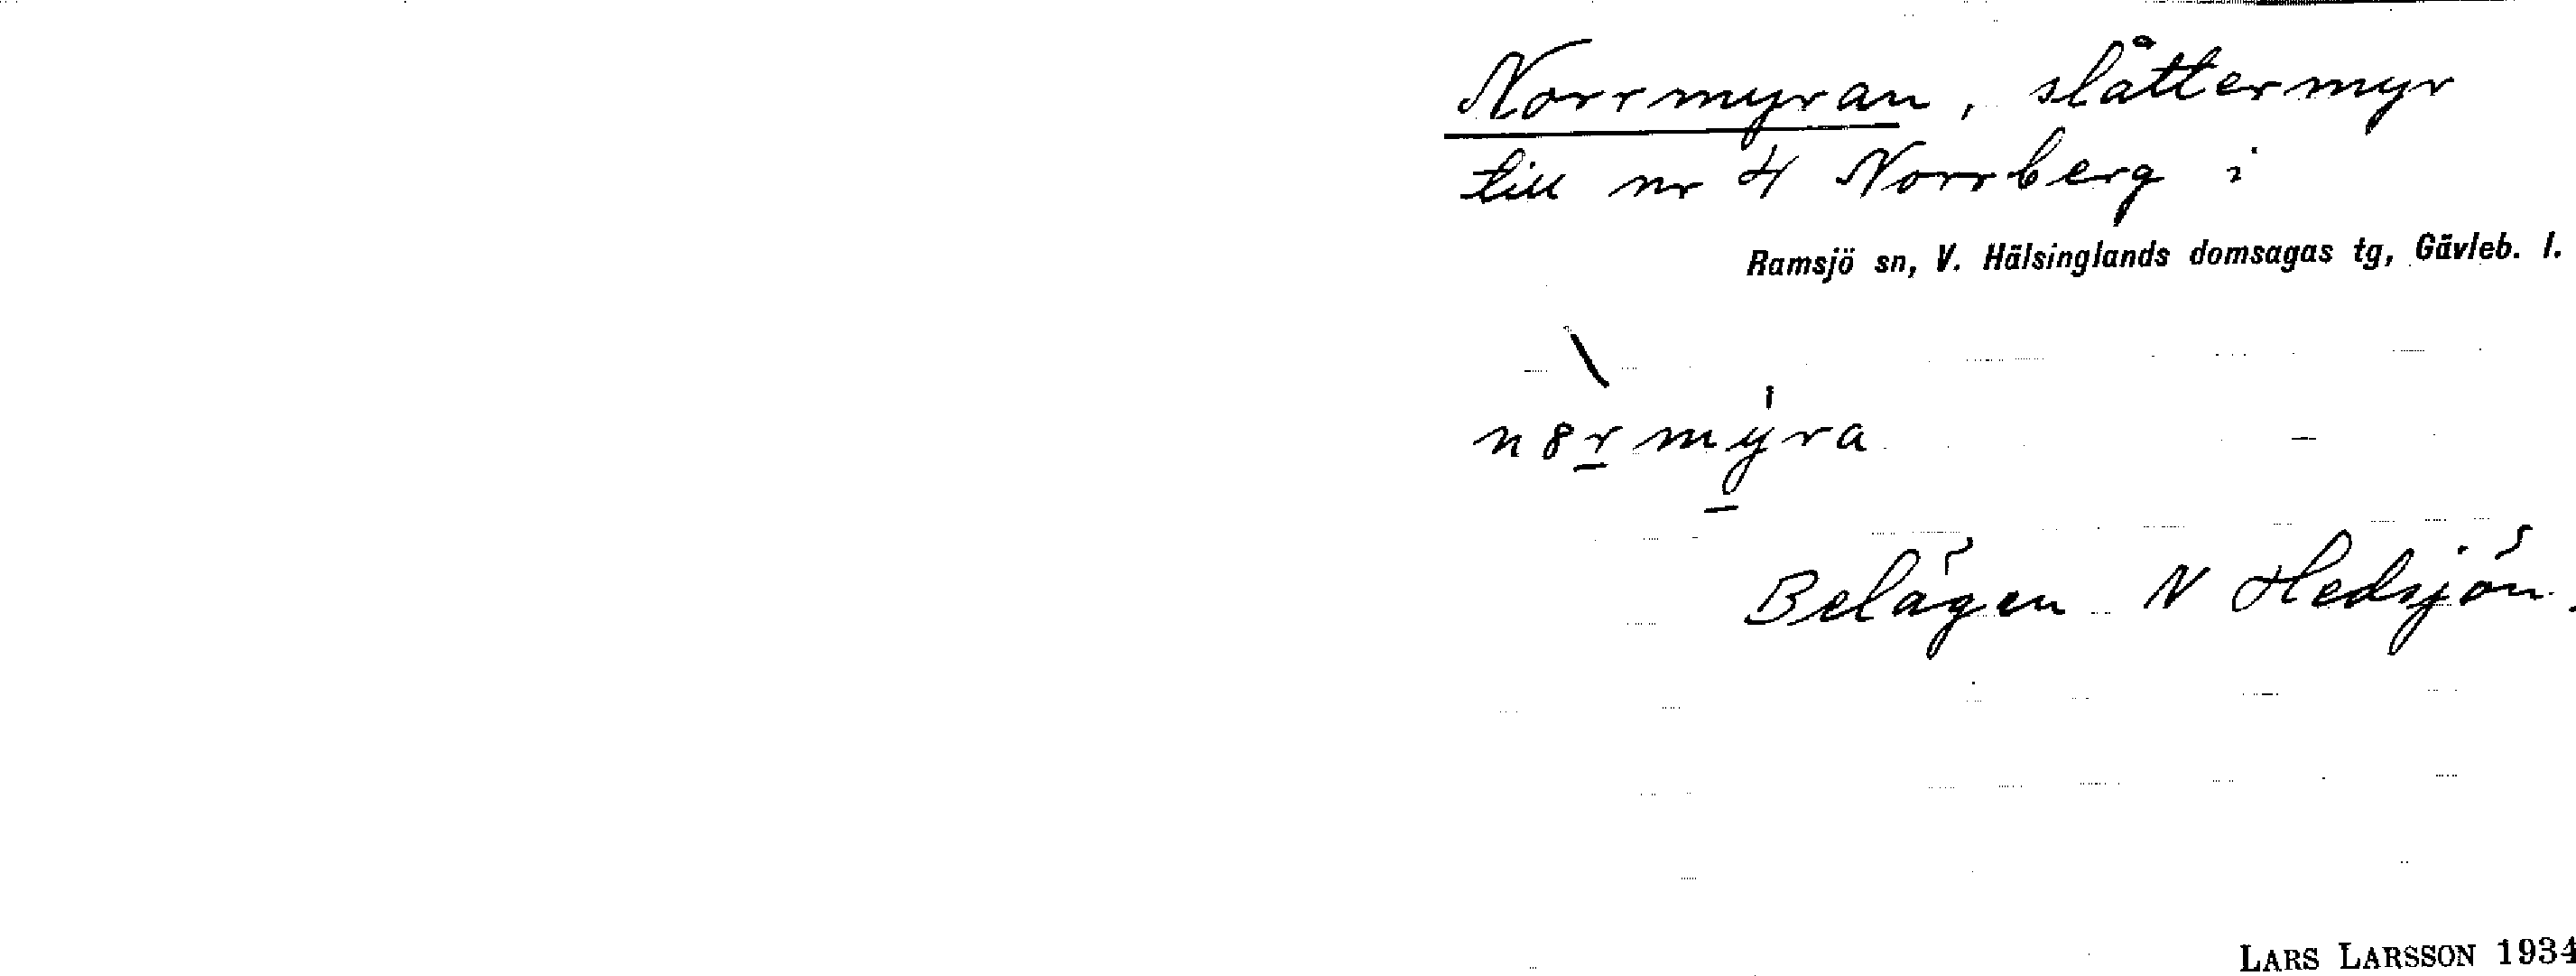 Norrmyran, slåttermyr
till nr 4 Norrberg i
Ramsjö sn, V. Hälsinglands domsagas tg, Gävleb. l.
n8rmyra
Belägen N Hedsjön.
LARS LARSSON 1934